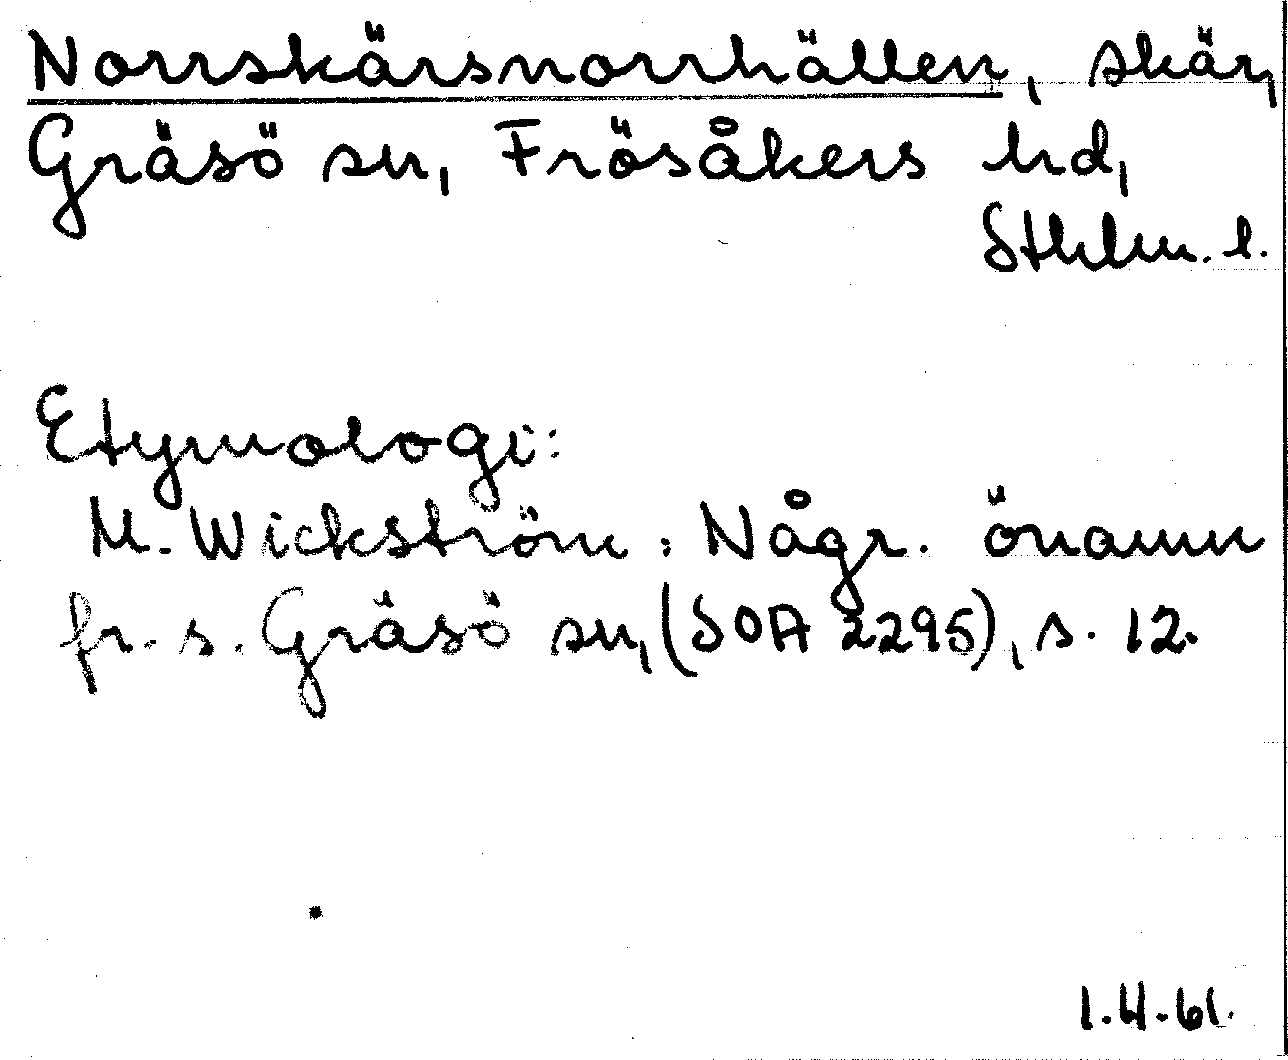 Norrskärsnorrhällen, skär,
Gräsö sn, Frösåkers hd,
Sthlm. l.
Etymologi:
M. Wickström: Någr. önamn
fr. s. Gräsö sn, (SOA 2295), s. 12.
1.4.61.